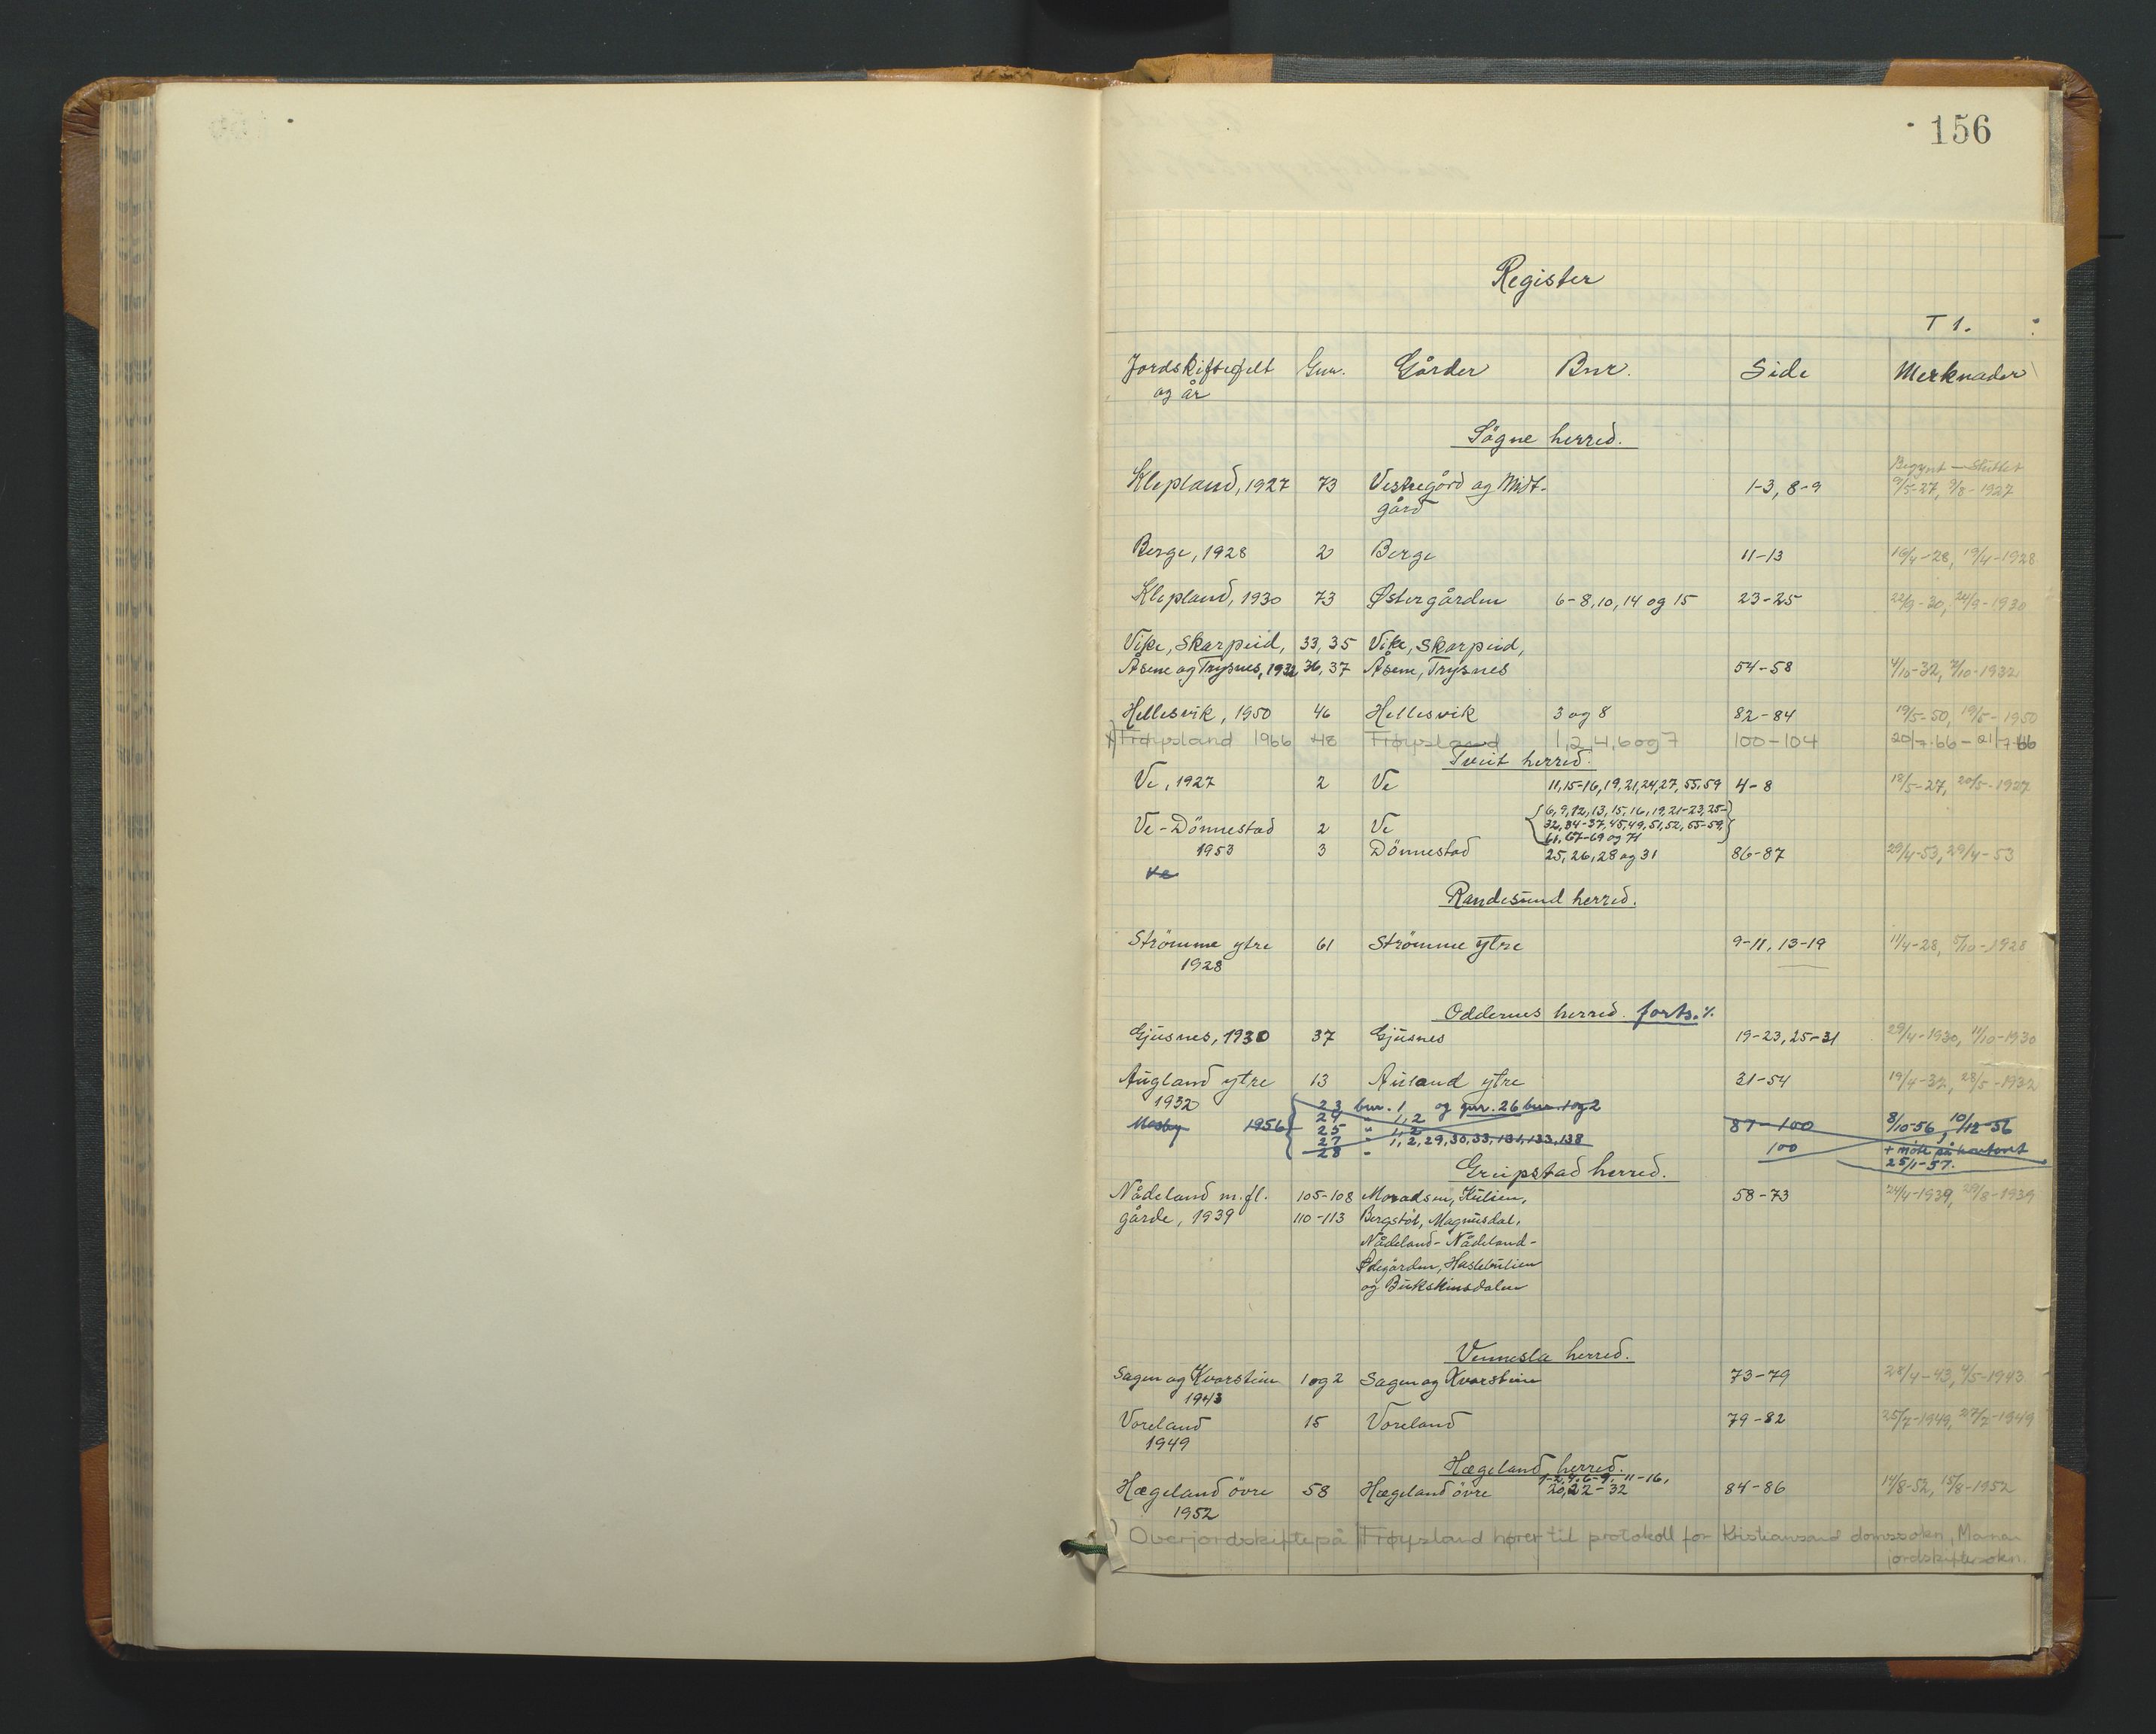 156
Register
T 1.
Jordskiftefelt og år Gnr. Gårder Bnr. Side Merknader
Søgne herred.
Begynt — Sluttet
Klepland, 1927 73 Vestregård og Midt- 1-3, 8-9 9/5-27, 9/8-1927
gård
Berge, 1928 2 Berge 11-13 16/4-28, 19/4-1928
Klepland, 1930 73 Østergården 6-8, 10, 14 og 15 23-25 22/9-30, 24/9-1930
Vike, Skarpeid, 33, 35 Vike, Skarpeid,
Åsene og Trysnes, 1932 36, 37 Åsene, Trysnes 54-58 4/10-32, 7/10-1932
Hellesvik, 1950 46 Hellesvik 3 og 8 82-84 19/5-50, 19/5-1950
x) Frøysland 1966 48 Frøysland 1, 2, 4, 6 og 7 100-104 20/7-66 - 21/7-66
Tveit herred.
Ve, 1927 2 Ve 11, 15-16, 19, 21, 24, 27, 55, 59 4-8 18/5-27, 20/5-1927
6, 9, 12, 13, 15, 16, 19, 21-23, 25-
Ve - Dönnestad 2 Ve 32, 34-37, 45, 49, 51, 52, 55-59,
61, 67-69 og 71
1953 3 Dönnestad 25, 26, 28 og 31 86-87 29/4-53, 29/4-53
Ve
Randesund herred.
Strömme ytre 61 Strömme ytre 9-11, 13-19 11/4-28, 5/10-1928
1928
Oddernes herred. forts. %.
Gjusnes, 1930 37 Gjusnes 19-23, 25-31 29/4-1930, 11/10-1930
Augland ytre 13 Auland ytre 31-54 19/4-32, 28/5-1932
1932
23 bnr. 1 og gnr. 26 bnr. 1 og 2
24 " 1, 2
Mosby 1956 25 " 1, 2 87-100 8/10-56, 10/12-56
27 " 1, 2, 29, 30, 33, 131, 133, 138 100 + møte på kontoret
28 - 25/1-57.
Greipstad herred.
Nådeland m.fl. 105-108 Moradsen, Kulien, 58-73 24/4-1939, 29/8-1939
gårde, 1939 110-113 Bergstöl, Magnusdal,
Nådeland - Nådeland-
Ødegården, Haslebulien
og Bukskinsdalen
Vennesla herred.
Sagen og Kvarstein 1 og 2 Sagen og Kvarstein 73-79 28/4-43, 4/5-1943
1943
Voreland 15 Voreland 79-82 25/7-1949, 27/7-1949
1949
Hægeland herred.
1-2, 4, 6-9, 11-16,
Hægeland övre 58 Hægeland övre 20, 22-32 84-86 14/8-52, 15/8-1952
1952
) Overjordskifte på Frøysland hører til protokoll for Kristiansand domssokn, Mandal
jordskiftesokn.